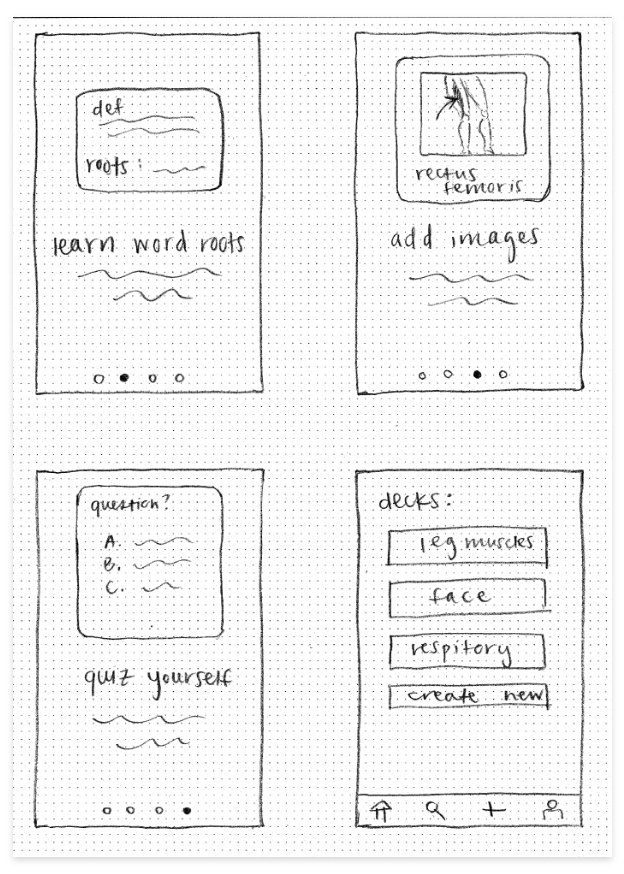 def
roots:
learn word roots
rectus
femoris
add images
question?
A.
B.
C.
quiz yourself
decks:
leg muscles
face
respitory
create new